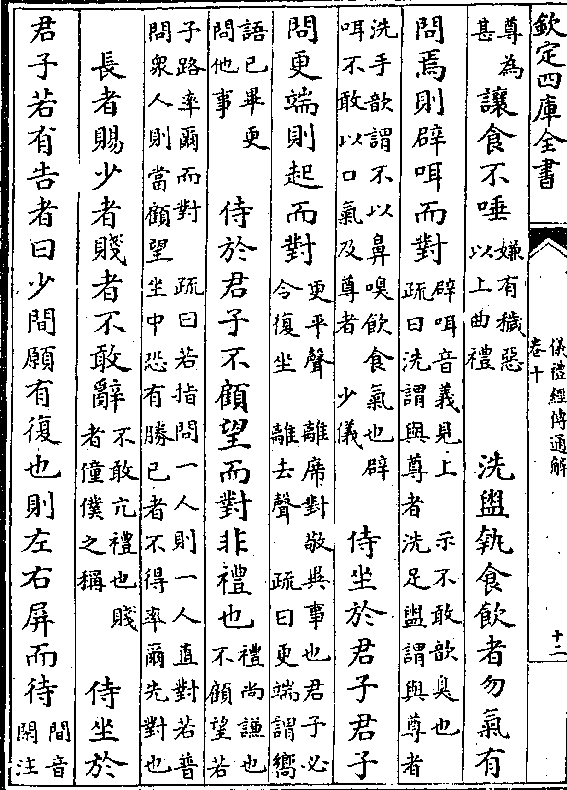 欽定四庫全書
儀禮經傳通解
卷十
十二
尊為
甚
讓食不唾
嫌有穢惡
以上曲禮
洗盥執食飲者勿氣有
問焉則辟咡而對
辟咡音義見上
示不敢歆臭也
疏曰洗謂與尊者洗足盥謂與尊者
洗手歆謂不以鼻嗅飲食氣也辟
咡不敢以口氣及尊者
少儀
侍坐於君子君子
問更端則起而對
更平聲
離席對敬異事也君子必
令復坐
離去聲
疏曰更端謂嚮
語已畢更
問他事
侍於君子不顧望而對非禮也
禮尚謙也
不顧望若
子路率爾而對
疏曰若指問一人則一人直對若普
問衆人則當顧望坐中恐有勝已者不得率爾先對也
長者賜少者賤者不敢辭
不敢亢禮也賤
者僮僕之稱
侍坐於
君子若有告者曰少間願有復也則左右屏而待
間音
閑注